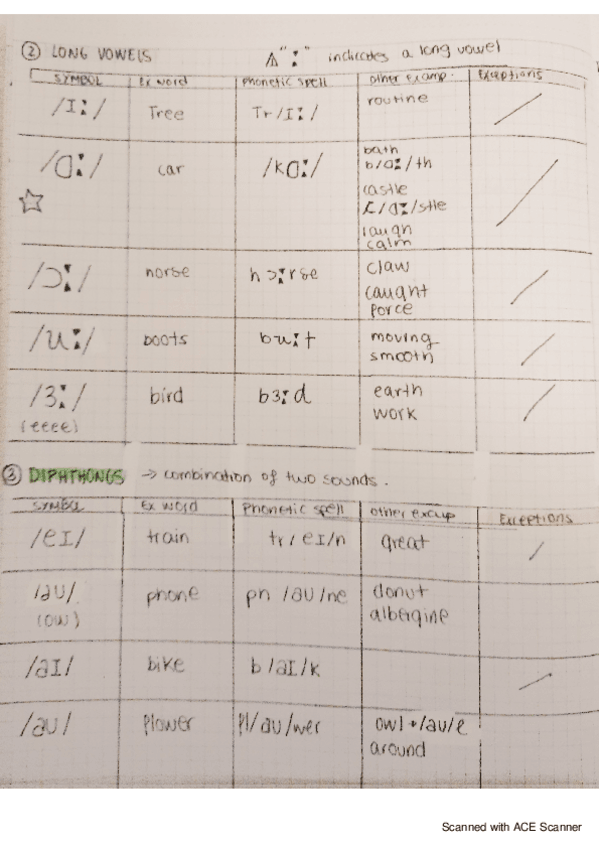 ② LONG VOWELS ⚠ " : " indicates a long vowel
SYMBOL Ex word Phonetic spell other examp. Exceptions
/Iː/ Tree Tr/Iː/ routine
/ɑː/ car /kɑː/ bath
b/ɑː/th
castle
c/ɑː/stle
laugh
calm
/ɔː/ horse hɔːrse claw
caught
force
/uː/ boots buːt moving
smooth
/3ː/ bird b3ːd earth
(eeee) work
③ DIPHTHONGS → combination of two sounds.
SYMBOL Ex word Phonetic spell other examp Exceptions
/eI/ train tr/eI/n great
/əU/ phone ph/əU/ne donut
(ow) albergine
/aI/ bike b/aI/k
/aU/ flower fl/aU/wer owl → /aU/l
around
Scanned with ACE Scanner